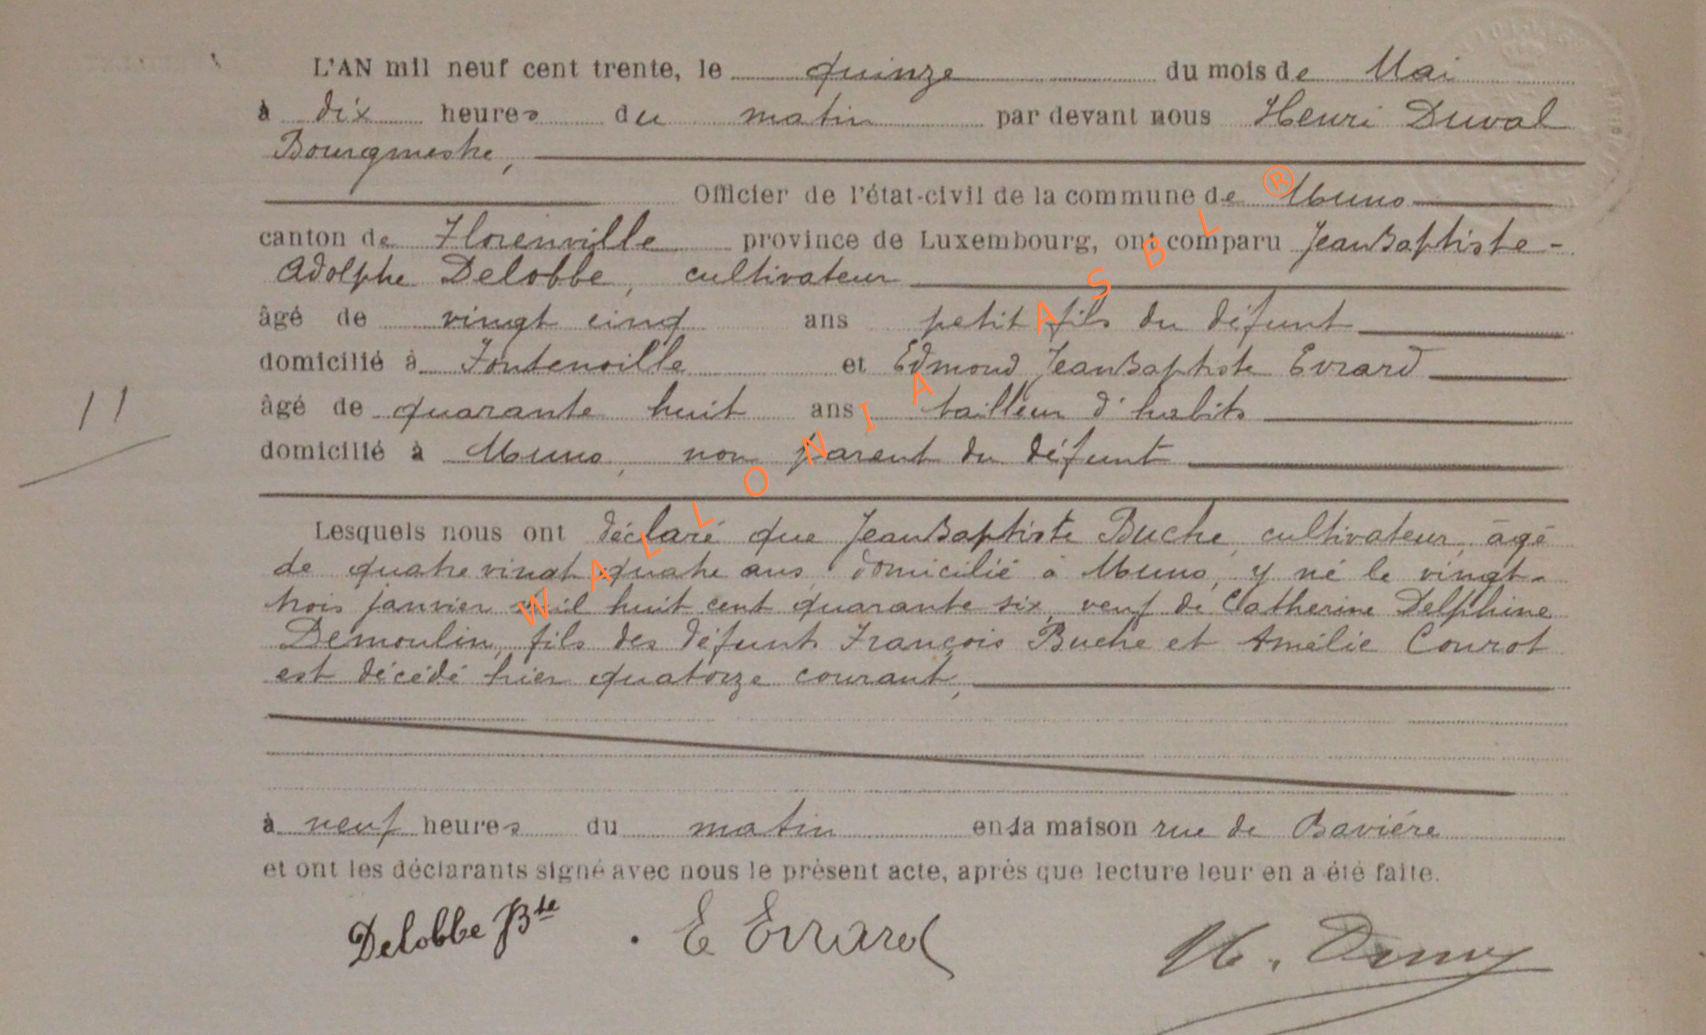 L'AN mil neuf cent trente, le quinze du mois de Mai
à dix heures du matin par devant nous Henri Duval
Bourgmestre,
Officier de l'état-civil de la commune de Muno
canton de Florenville province de Luxembourg, ont comparu Jean Baptiste-
Adolphe Delobbe, cultivateur
âgé de vingt cinq ans petit fils du défunt
domicilié à Fontenoille et Edmond Jean Baptiste Evrard
11
âgé de quarante huit ans tailleur d'habits
domicilié à Muno, non parent du défunt
Lesquels nous ont déclaré que Jean Baptiste Buche, cultivateur, âgé
de quatre vingt quatre ans, domicilié à Muno, y né le vingt-
trois janvier mil huit cent quarante six, veuf de Catherine Delphine
Demoulin, fils des défunts François Buche et Amélie Courot
est décédé hier quatorze courant,
à neuf heures du matin en sa maison rue de Bavière
et ont les déclarants signé avec nous le présent acte, après que lecture leur en a été faite.
Delobbe JBte E Evrard H. Duval
WALLONIA ASBL ®